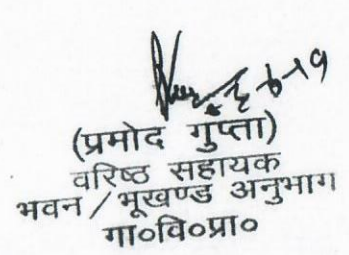 (प्रमोद गुप्ता)
वरिष्ठ सहायक
भवन / भूखण्ड अनुभाग
गा०वि०प्रा०